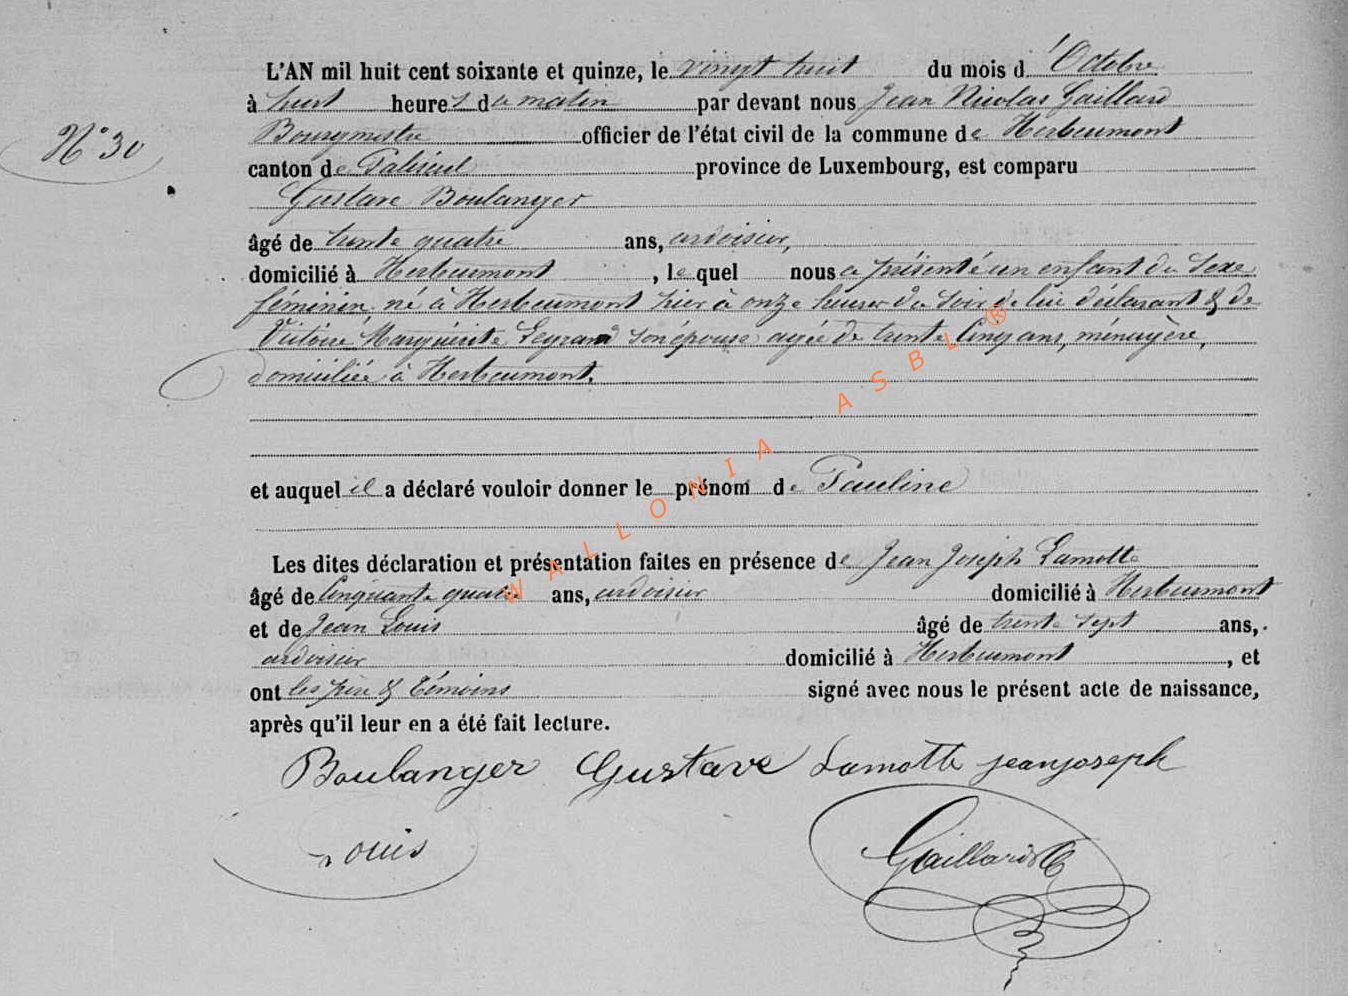 L'AN mil huit cent soixante et quinze, le vingt huit du mois d'Octobre
à huit heures du matin par devant nous Jean Nicolas Gaillard
N° 30
Bourgmestre officier de l'état civil de la commune de Herbeumont
canton de Paliseul province de Luxembourg, est comparu
Gustave Boulanger
âgé de trente quatre ans, ardoisier,
domicilié à Herbeumont, lequel nous a présenté un enfant du sexe
féminin, né à Herbeumont hier à onze heures du soir de lui déclarant & de
Victoire Marguérite Legrand son épouse agée de trente cinq ans, ménagère,
domiciliée à Herbeumont.
et auquel il a déclaré vouloir donner le prénom de Pauline
Les dites déclaration et présentation faites en présence de Jean Joseph Lamotte
âgé de Cinquante quatre ans, ardoisier domicilié à Herbeumont
et de Jean Louis âgé de trente sept ans,
ardoisier domicilié à Herbeumont, et
ont les père & témoins signé avec nous le présent acte de naissance,
après qu'il leur en a été fait lecture.
Boulanger Gustave Lamotte jean joseph
Louis Gaillard
WALLONIA ASBL ®